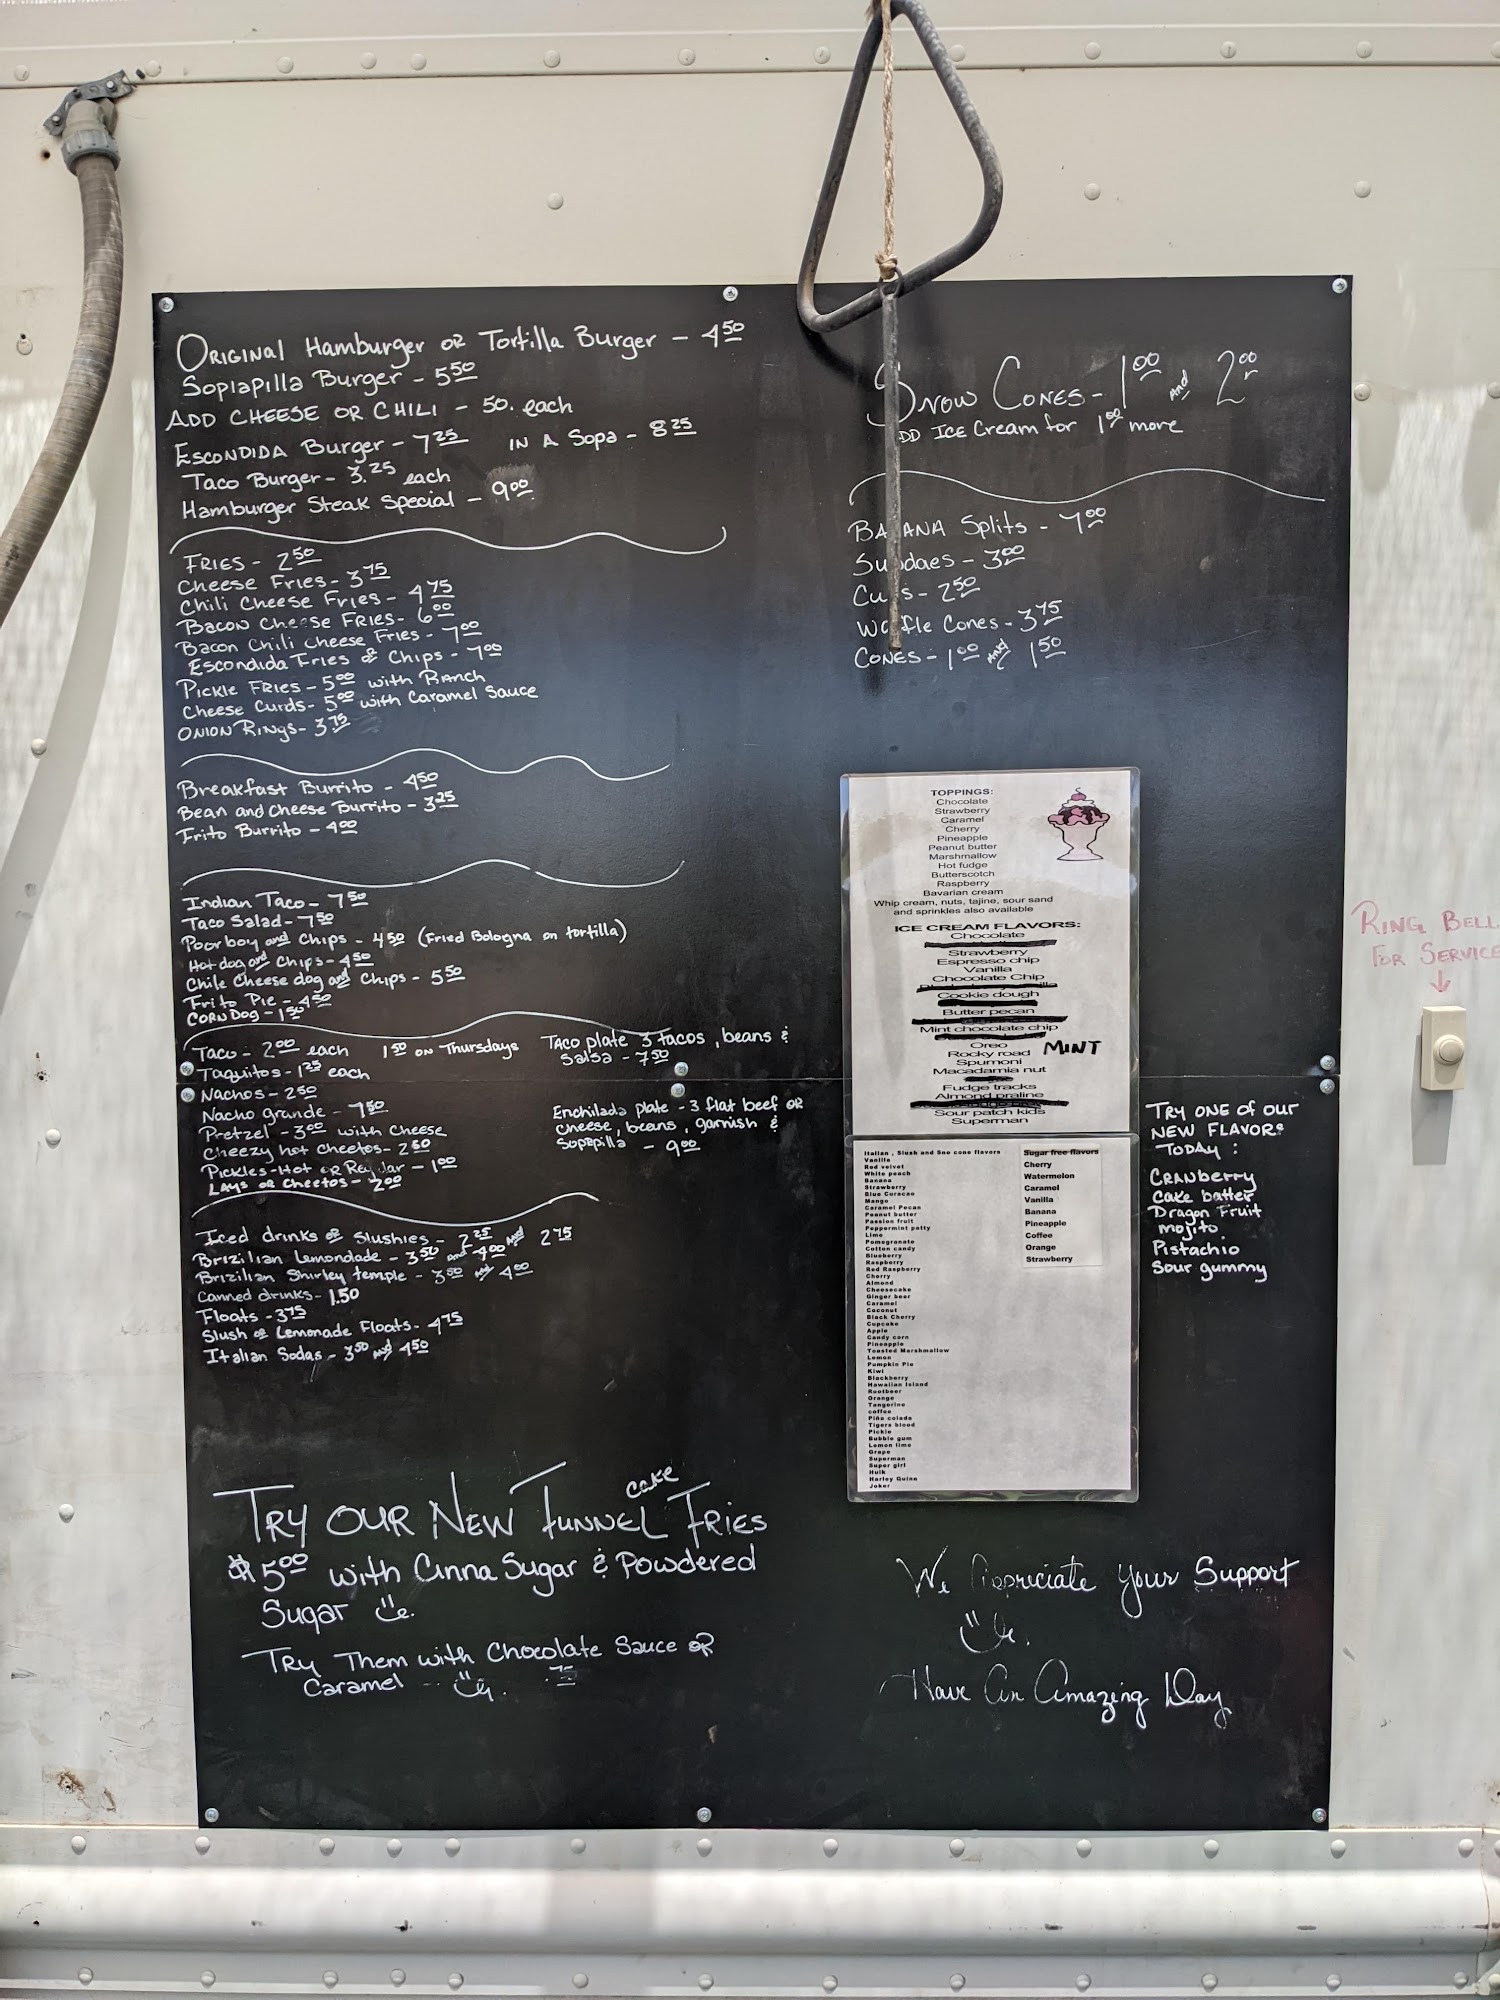 ORIGINAL Hamburger OR Tortilla Burger - 4.50
Sopiapilla Burger - 5.50
ADD CHEESE OR CHILI - 50. each
ESCONDIDA Burger - 7.25 IN A Sopa - 8.25
Taco Burger - 3.25 each
Hamburger Steak Special - 9.00
FRIES - 2.50
Cheese Fries - 3.75
Chili Cheese Fries - 4.75
Bacon Cheese FRIES - 6.00
Bacon Chili Cheese Fries - 7.00
Escondida Fries OR Chips - 7.00
Pickle FRIES - 5.00 with RANCH
Cheese Curds - 5.00 with Caramel Sauce
ONION RINGS - 3.75
Breakfast Burrito - 4.50
Bean and Cheese Burrito - 3.25
Frito Burrito - 4.00
Indian Taco - 7.50
Taco Salad - 7.50
Poorboy and Chips - 4.50 (Fried Bologna on tortilla)
Hotdog and Chips - 4.50
Chile Cheese dog and Chips - 5.50
Frito Pie - 4.50
CORN Dog - 1.50
Taco - 2.00 each 1.50 ON Thursdays
Taquitos - 1.25 each
Nachos - 2.50
Nacho grande - 7.50
Pretzel - 3.00 with Cheese
Cheezy hot cheetos - 2.50
Pickles - Hot OR Regular - 1.00
LAYS OR Cheetos - 2.00
Taco plate 3 tacos, beans &
Salsa - 7.50
Enchilada plate - 3 flat beef OR
Cheese, beans, garnish &
Sopapilla - 9.00
Iced drinks OR Slushies - 2.25 and 2.75
Brizilian Lemondade - 3.50 and 4.00
Brizilian Shirley temple - 3.50 and 4.00
Canned drinks - 1.50
Floats - 3.75
Slush OR Lemonade Floats - 4.75
Italian Sodas - 3.50 and 4.50
TRY OUR NEW FUNNEL cake FRIES
$5.00 with Cinna Sugar & Powdered
Sugar
TRY Them with Chocolate Sauce OR
Caramel - .75
SNOW CONES - 1.00 and 2.00
DD ICE Cream for 1.00 more
BANANA Splits - 7.00
Sundaes - 3.00
Cu s - 2.50
Waffle Cones - 3.75
CONES - 1.00 and 1.50
TOPPINGS:
Chocolate
Strawberry
Caramel
Cherry
Pineapple
Peanut butter
Marshmallow
Hot fudge
Butterscotch
Raspberry
Bavarian cream
Whip cream, nuts, tajine, sour sand
and sprinkles also available
ICE CREAM FLAVORS:
Chocolate
Strawberry
Espresso chip
Vanilla
Chocolate Chip
Cookie dough
Butter pecan
Mint chocolate chip
Oreo MINT
Rocky road
Spumoni
Macadamia nut
Fudge tracks
Almond praline
Sour patch kids
Superman
Italian, Slush and Sno cone flavors
Vanilla
Red velvet
White peach
Banana
Strawberry
Blue Curacao
Mango
Caramel Pecan
Peanut butter
Passion fruit
Peppermint patty
Lime
Pomegranate
Cotton candy
Blueberry
Raspberry
Red Raspberry
Cherry
Almond
Cheesecake
Ginger beer
Caramel
Coconut
Black Cherry
Cupcake
Apple
Candy corn
Pineapple
Toasted Marshmallow
Lemon
Pumpkin Pie
Kiwi
Blackberry
Hawaiian Island
Rootbeer
Orange
Tangerine
coffee
Piña colada
Tigers blood
Pickle
Bubble gum
Lemon lime
Grape
Superman
Super girl
Hulk
Harley Quinn
Joker
Sugar free flavors
Cherry
Watermelon
Caramel
Vanilla
Banana
Pineapple
Coffee
Orange
Strawberry
TRY ONE of our
NEW FLAVORS
TODAY:
CRANberry
Cake batter
Dragon Fruit
mojito
Pistachio
Sour gummy
We Appreciate Your Support
Have An Amazing Day
RING BELL
FOR SERVICE